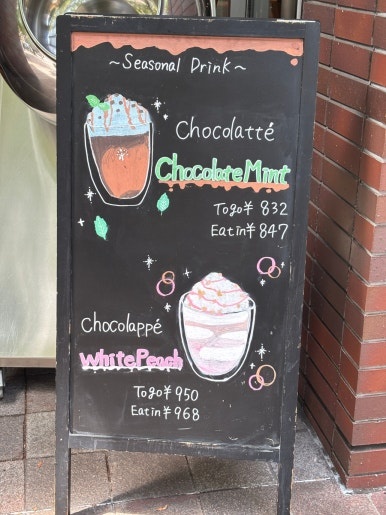 ~Seasonal Drink~
Chocolatté
Chocolate Mint
Togo¥ 832
Eat in¥ 847
Chocolappé
White Peach
Togo¥ 950
Eat in¥ 968